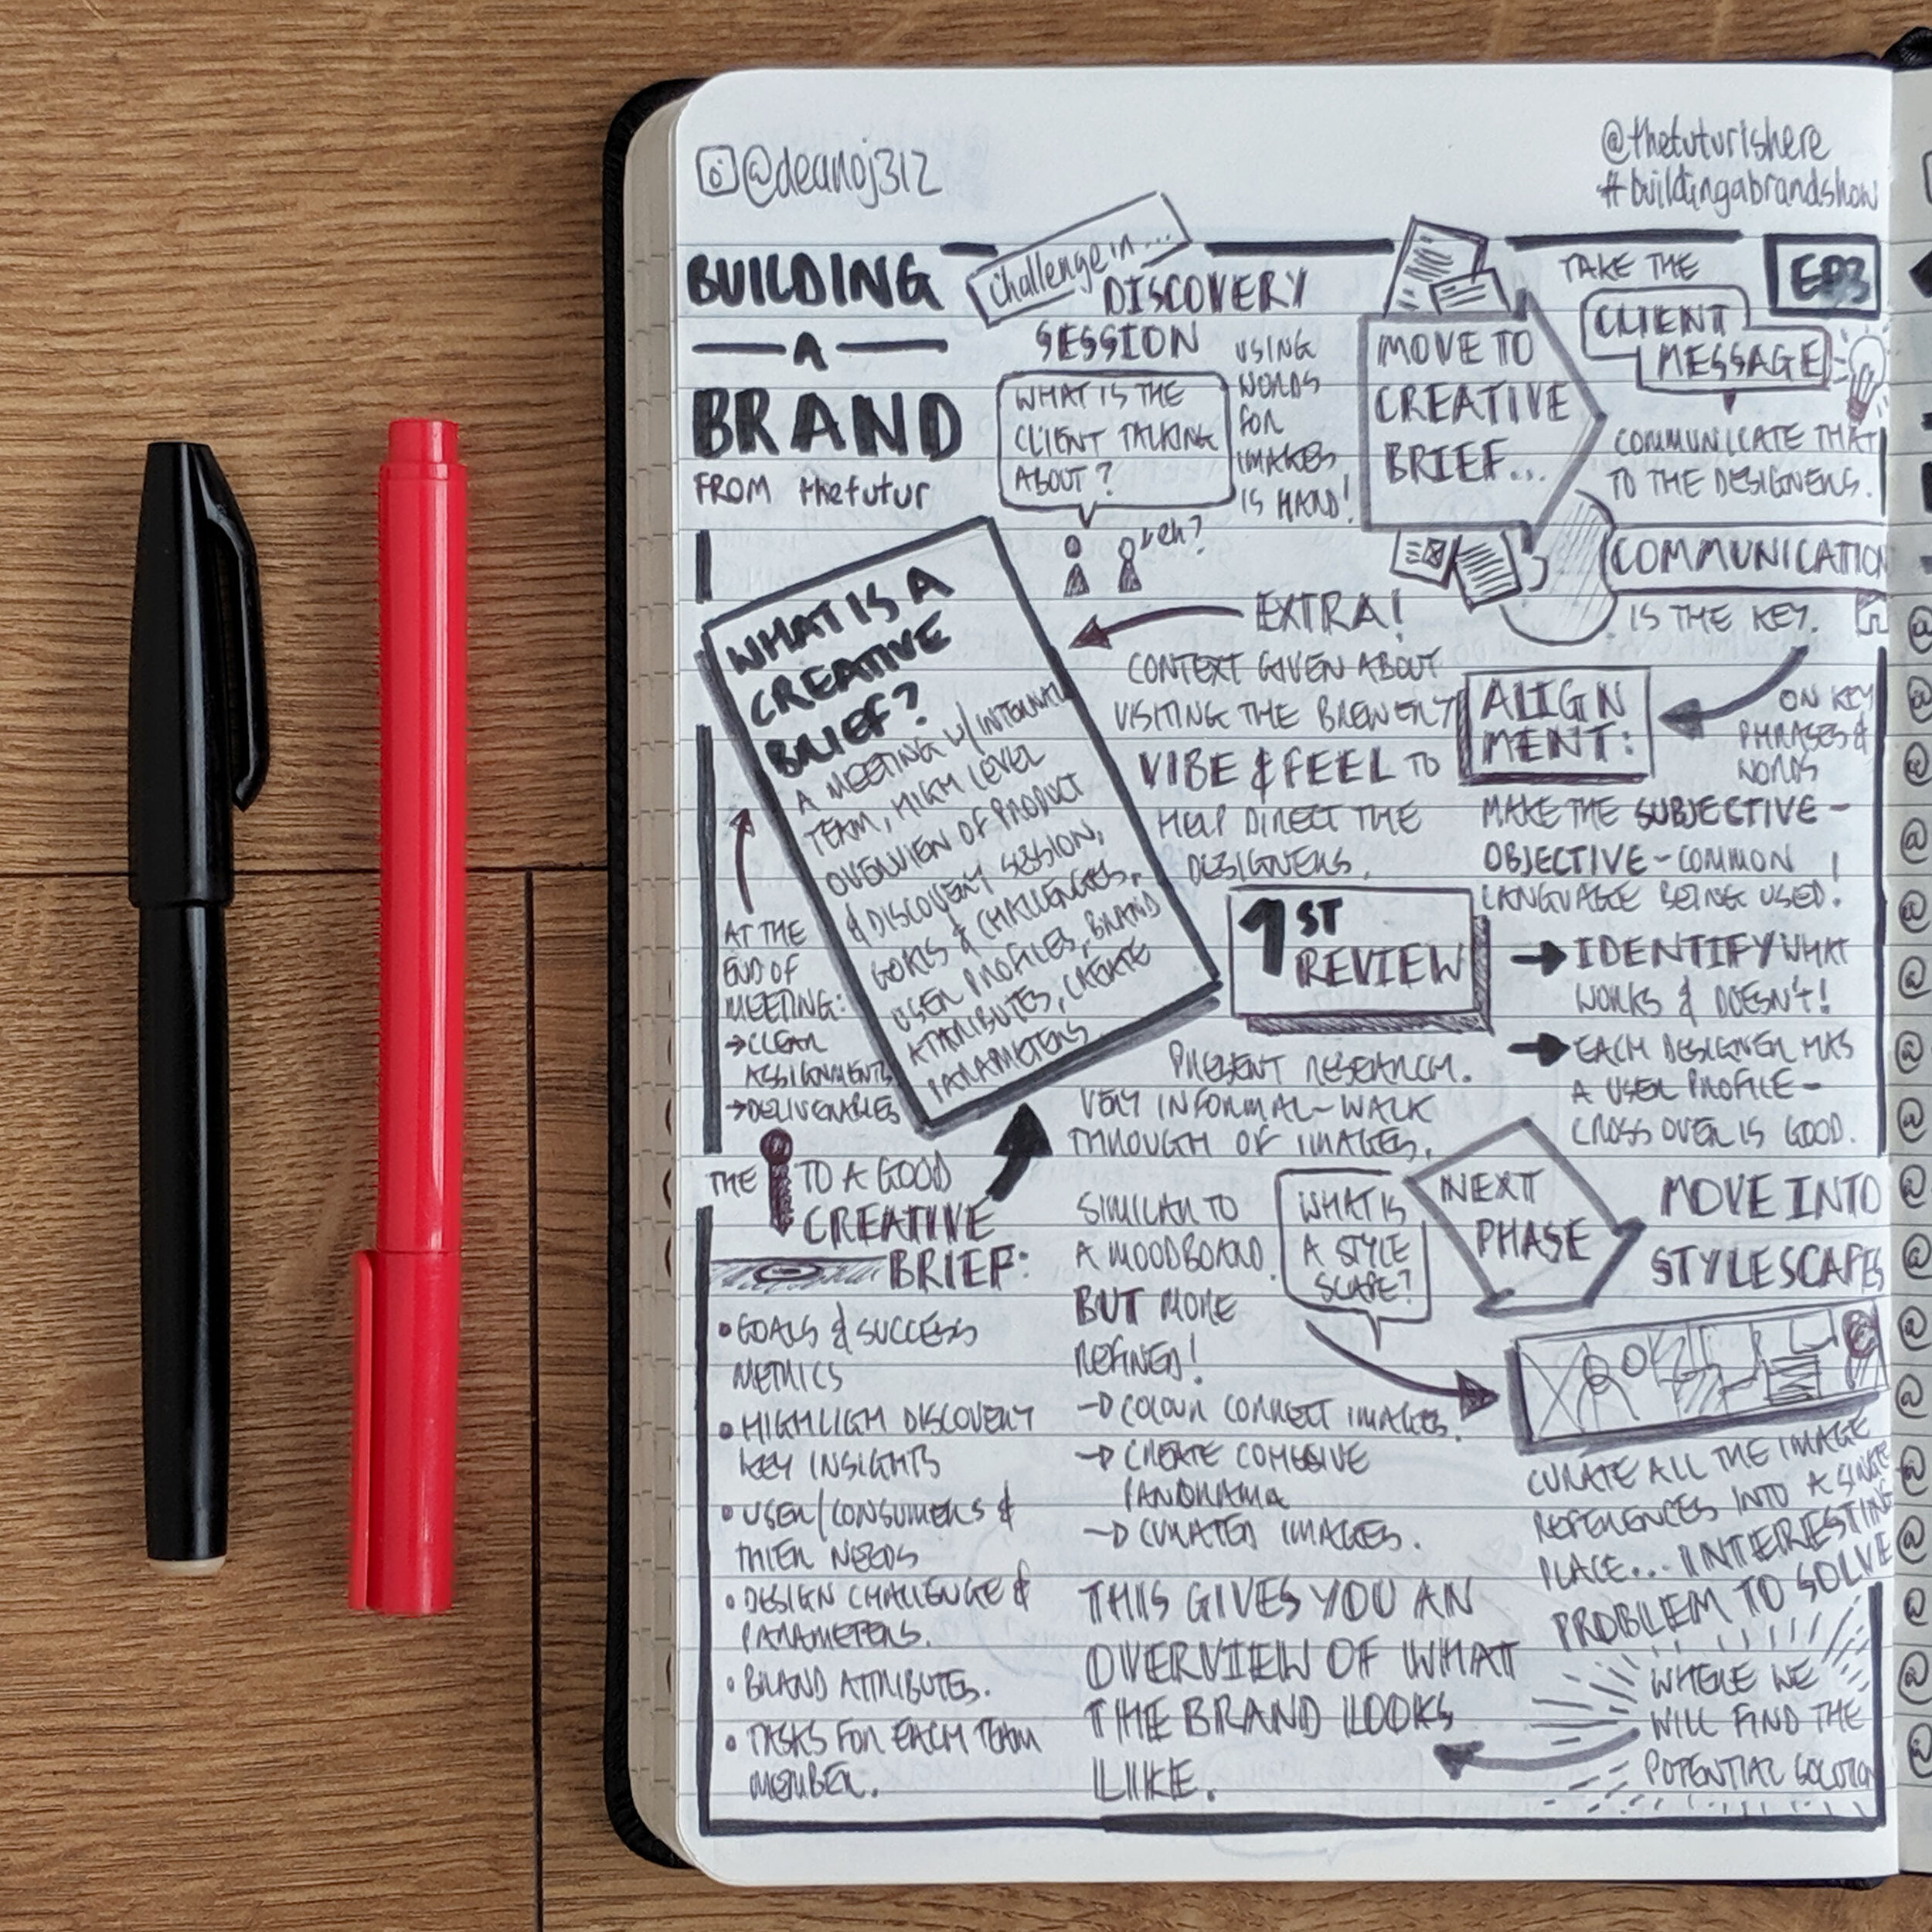 @deanoj312
@thefuturishere
#buildingabrandshow
BUILDING
A
BRAND
FROM thefutur
Challenge in...
DISCOVERY
SESSION
WHAT IS THE
CLIENT TALKING
ABOUT?
USING
WORDS
FOR
IMAGES
IS HARD!
eh?
MOVE TO
CREATIVE
BRIEF...
TAKE THE
CLIENT
MESSAGE
EP3
COMMUNICATE THAT
TO THE DESIGNERS.
COMMUNICATION
IS THE KEY.
WHAT IS A
CREATIVE
BRIEF?
A MEETING W/INTERNAL
TEAM, HIGH LEVEL
OVERVIEW OF PRODUCT
& DISCOVERY SESSION,
GOALS & CHALLENGES,
USER PROFILES, BRAND
ATTRIBUTES, CREATE
PARAMETERS
EXTRA!
CONTEXT GIVEN ABOUT
VISITING THE BREWERY
VIBE & FEEL TO
HELP DIRECT THE
DESIGNERS.
ALIGN
MENT:
ON KEY
PHRASES &
WORDS
MAKE THE SUBJECTIVE -
OBJECTIVE - COMMON
LANGUAGE BEING USED!
AT THE
END OF
MEETING:
→CLEAR
ASSIGNMENTS
→DELIVERABLES
1ST
REVIEW
→IDENTIFY WHAT
WORKS & DOESN'T!
→EACH DESIGNER HAS
A USER PROFILE -
CROSS OVER IS GOOD.
PRESENT RESEARCH.
VERY INFORMAL - WALK
THROUGH OF IMAGES.
THE
TO A GOOD
CREATIVE
BRIEF:
• GOALS & SUCCESS
METRICS
• HIGHLIGH DISCOVERY
KEY INSIGHTS
• USER/CONSUMERS &
THIER NEEDS
• DESIGN CHALLENGE &
PARAMETERS.
• BRAND ATTRIBUTES.
• TASKS FOR EACH TEAM
MEMBER.
NEXT
PHASE
MOVE INTO
STYLESCAPES
WHAT IS
A STYLE
SCAPE?
SIMILAR TO
A MOODBOARD
BUT MORE
REFINED!
→ COLOUR CORRECT IMAGES.
→ CREATE COHESIVE
PANORAMA
→ CURATED IMAGES.
CURATE ALL THE IMAGE
REFERENCES INTO A SINGLE
PLACE... INTERESTING
PROBLEM TO SOLVE
WHERE WE
WILL FIND THE
POTENTIAL SOLUTION
THIS GIVES YOU AN
OVERVIEW OF WHAT
THE BRAND LOOKS
LIKE.